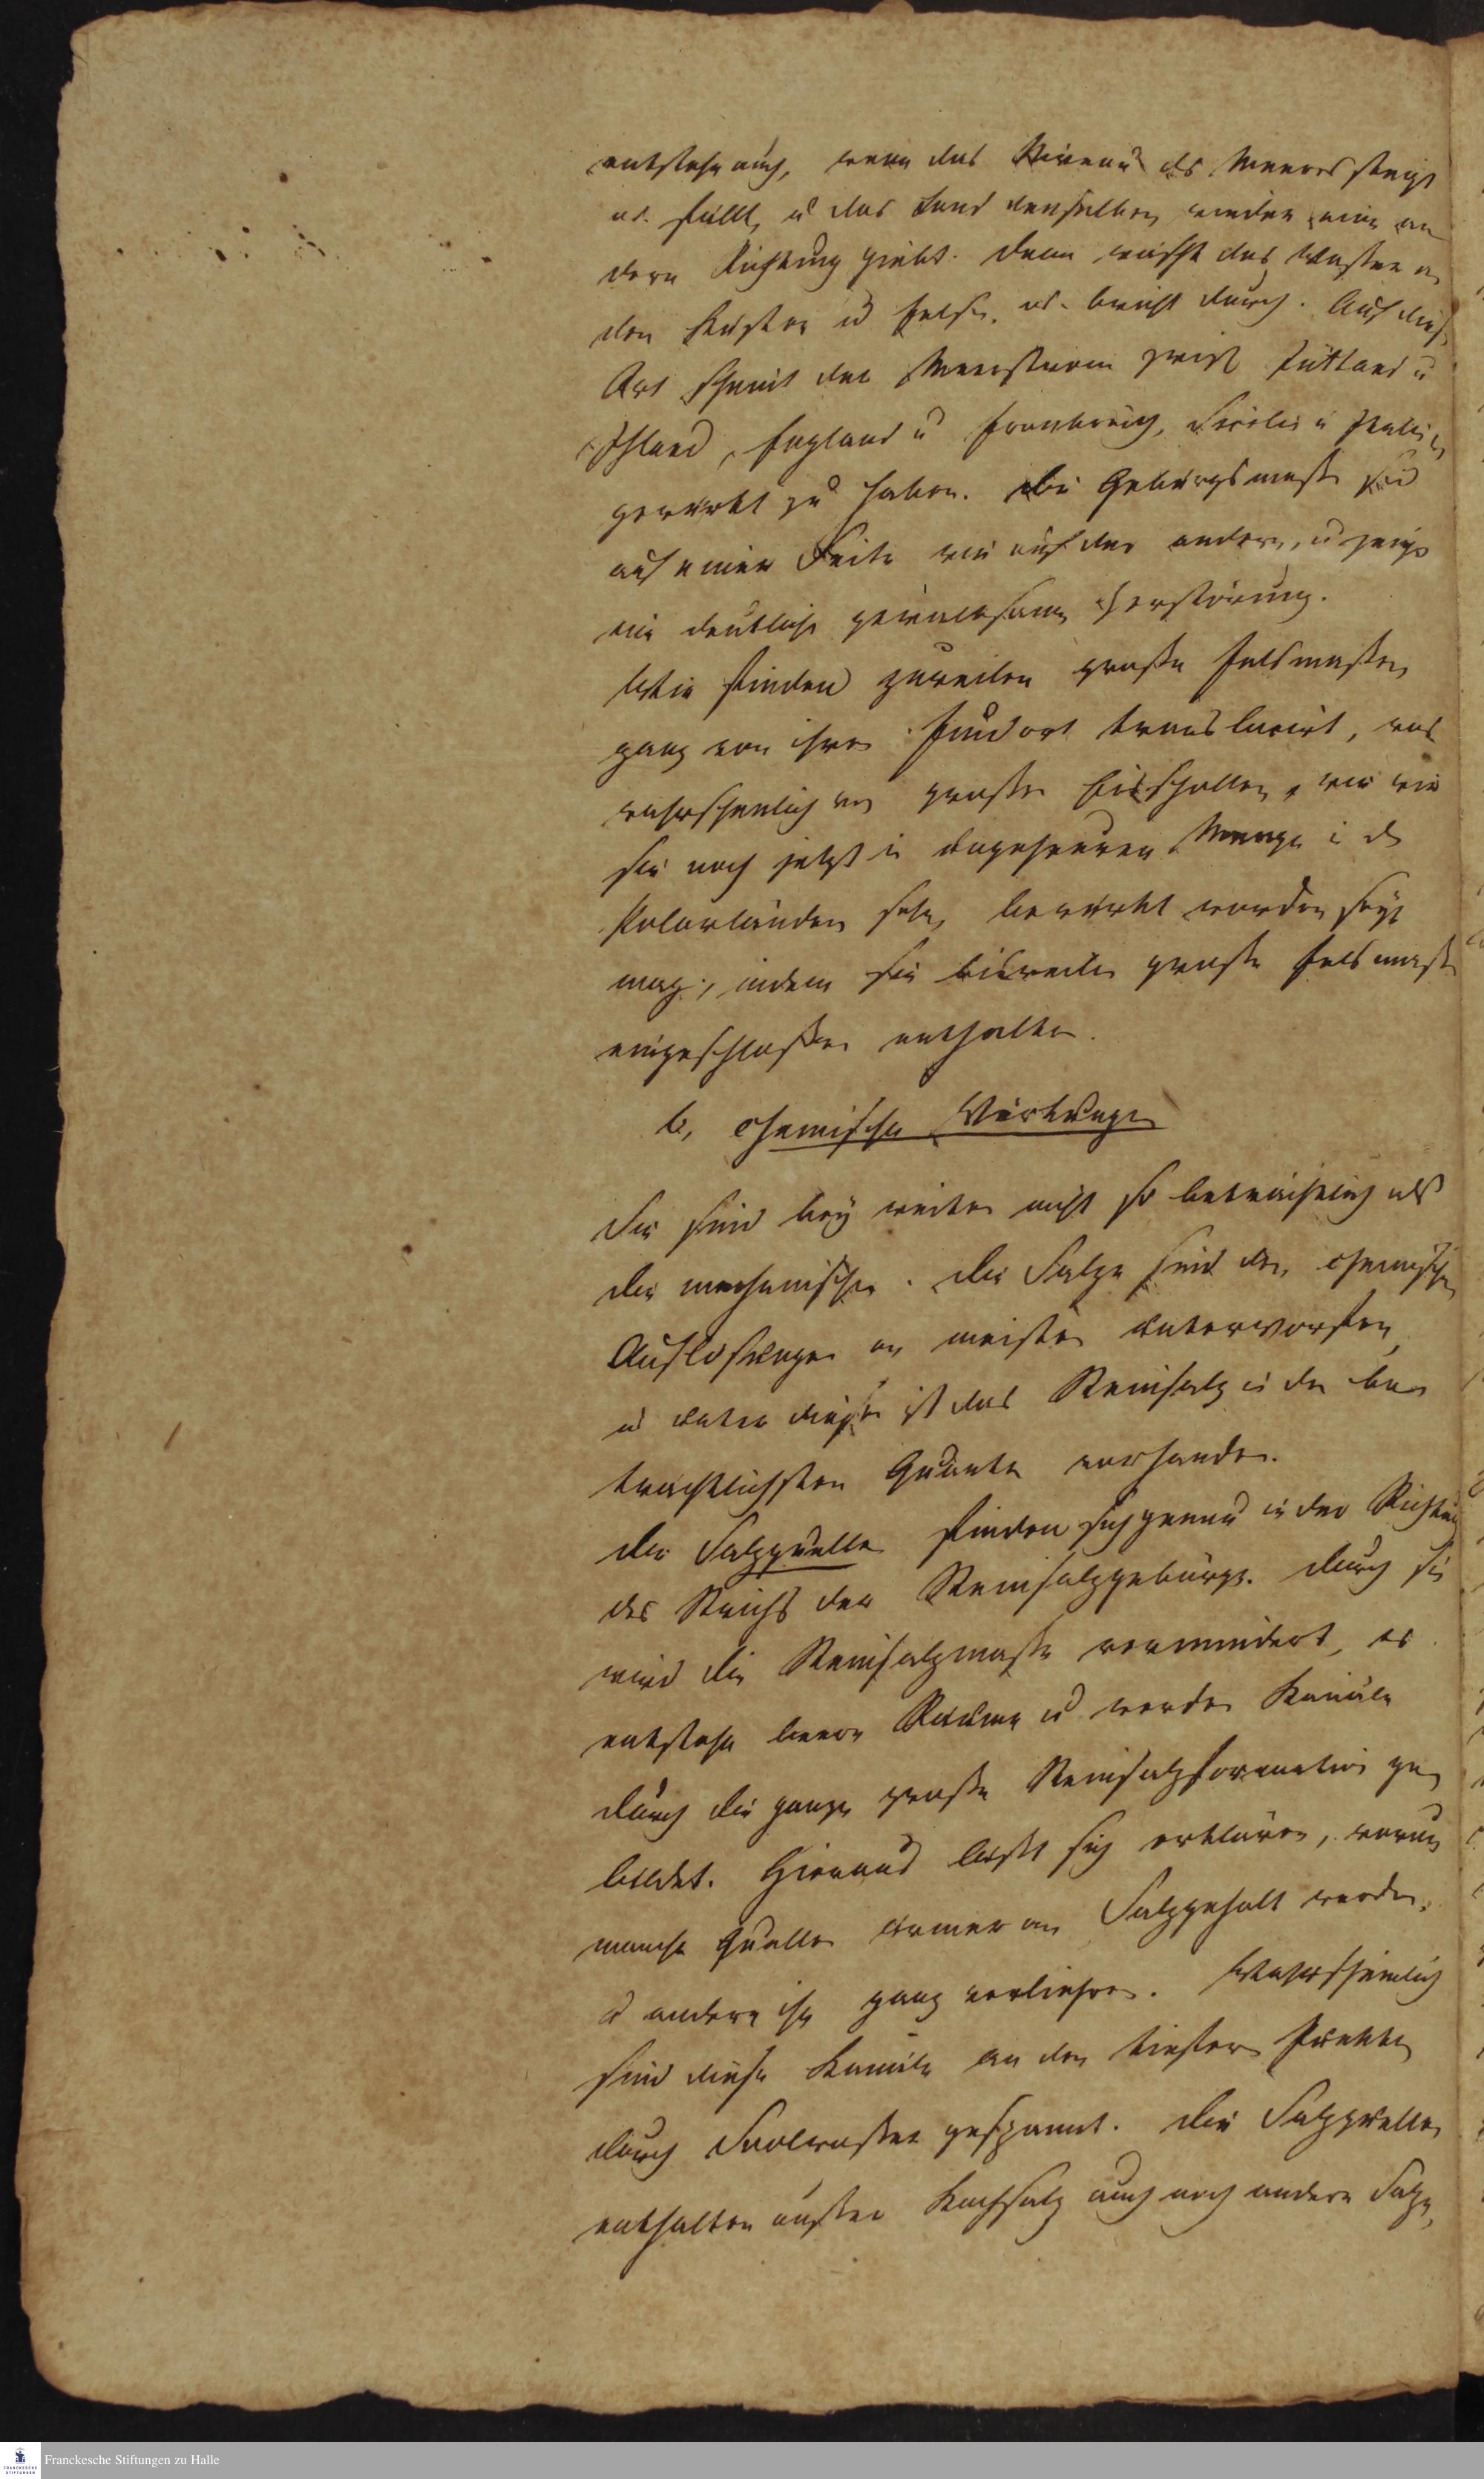 entstehn auch, wenn das Niveau des Meeres steigt
od. fällt, u das Land denselben wieder eine an
dere Richtung giebt. Dann wäscht das Wasser an
den Küsten u Felsen od. bricht durch. Auf diese
Art scheint der Meersturm zwisch Jütland u
Island, England u Frankreich, Sicilien u Italien
gewirkt zu haben. Die Gebirgsmasse sind
auf einer Seite wie auf der andern, u zeigt
eine deutliche gewaltsame Zerstörung.
Wir finden zuweilen große Felsmassen
ganz von ihrem Fundort translocirt, was
wahrscheinlich von großen Eisschollen, wie wir
sie noch jetzt in ungeheurer Menge in d
Polarländern sehn, bewirkt worden seyn
mag, indem sie bisweilen große Felsmasse
eingeschloßen enthalten.
b, chemische Wirkungen
Sie sind bey weiten nicht so beträchtlich als
die mechanischen. Die Salze sind den chemischen
Auflösungen am meisten unterworfen,
u unter diesen ist das Steinsalz in der be
trächtlichsten Quante vorhanden.
Die Salzquellen finden sich genau in der Richtung
des Strichs der Steinsalzgebürge. Durch sie
wird die Steinsalzmasse vermindert, es
entstehn leere Räume u werden Kanäle
durch die ganze große Steinsalzformation ge
bildet. Hieraus läßt sich erklären, warum
manche Quellen ärmer an Salzgehalt werden,
u andere ihn ganz verliehren. Wahrscheinlich
sind diese Kanäle an den tiefsten Punkten
durch Soolwasser gespannt. Die Salzquellen
enthalten außer Kochsalz auch noch andere Salze,
Franckesche Stiftungen zu Halle